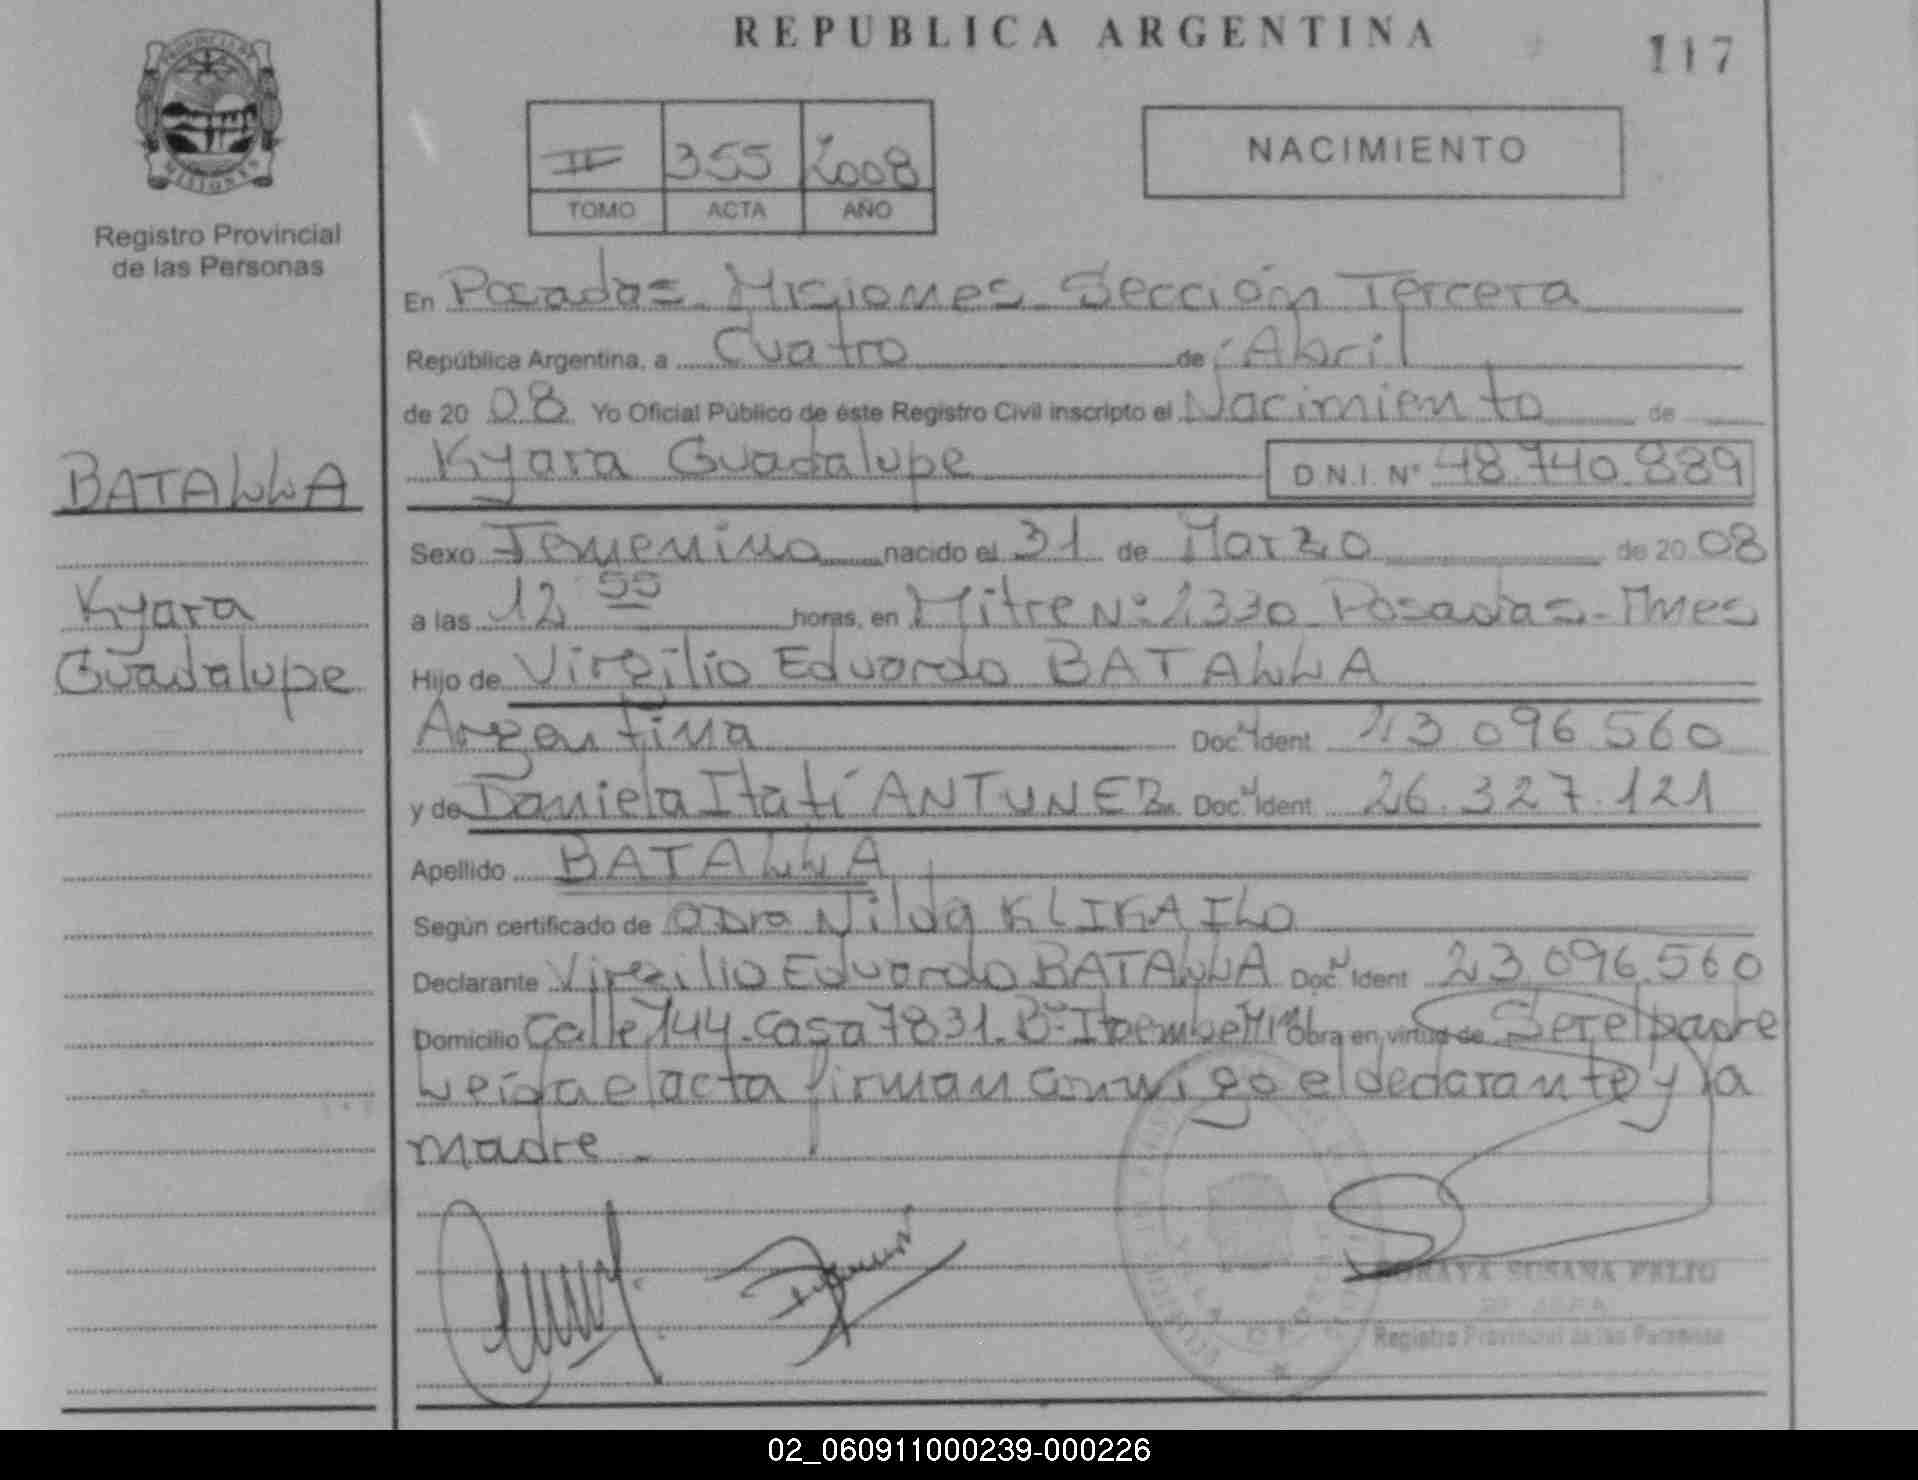 REPUBLICA ARGENTINA
117
PROVINCIA DE MISIONES
Registro Provincial
de las Personas
II 355 2008
TOMO ACTA AÑO
NACIMIENTO
En Posadas - Misiones - Sección Tercera
República Argentina, a Cuatro de Abril
de 20 08 Yo Oficial Público de éste Registro Civil inscripto el Nacimiento de
BATALLA
Kyara Guadalupe D.N.I. Nº 48.740.889
Sexo Femenino nacido el 31 de Marzo de 20 08
Kyara
Guadalupe
a las 12 55 horas, en Mitre Nº 2330 Posadas - Mnes
Hijo de Virgilio Eduardo BATALLA
Argentina Doc. Ident 23 096 560
y de Daniela Itatí ANTUNEZ Doc. Ident 26.327.121
Apellido BATALLA
Según certificado de Nilda KLIKAILO
Declarante Virgilio Eduardo BATALLA Doc. Ident 23 096 560
Domicilio Calle 144 - Casa 7831. Bº Itaembe Miní Obra en virtud de Ser el padre
Leída el acta firman conmigo el declarante y la
madre -
SORAYA SUSANA FELIO
Registro Provincial de las Personas
02_060911000239-000226